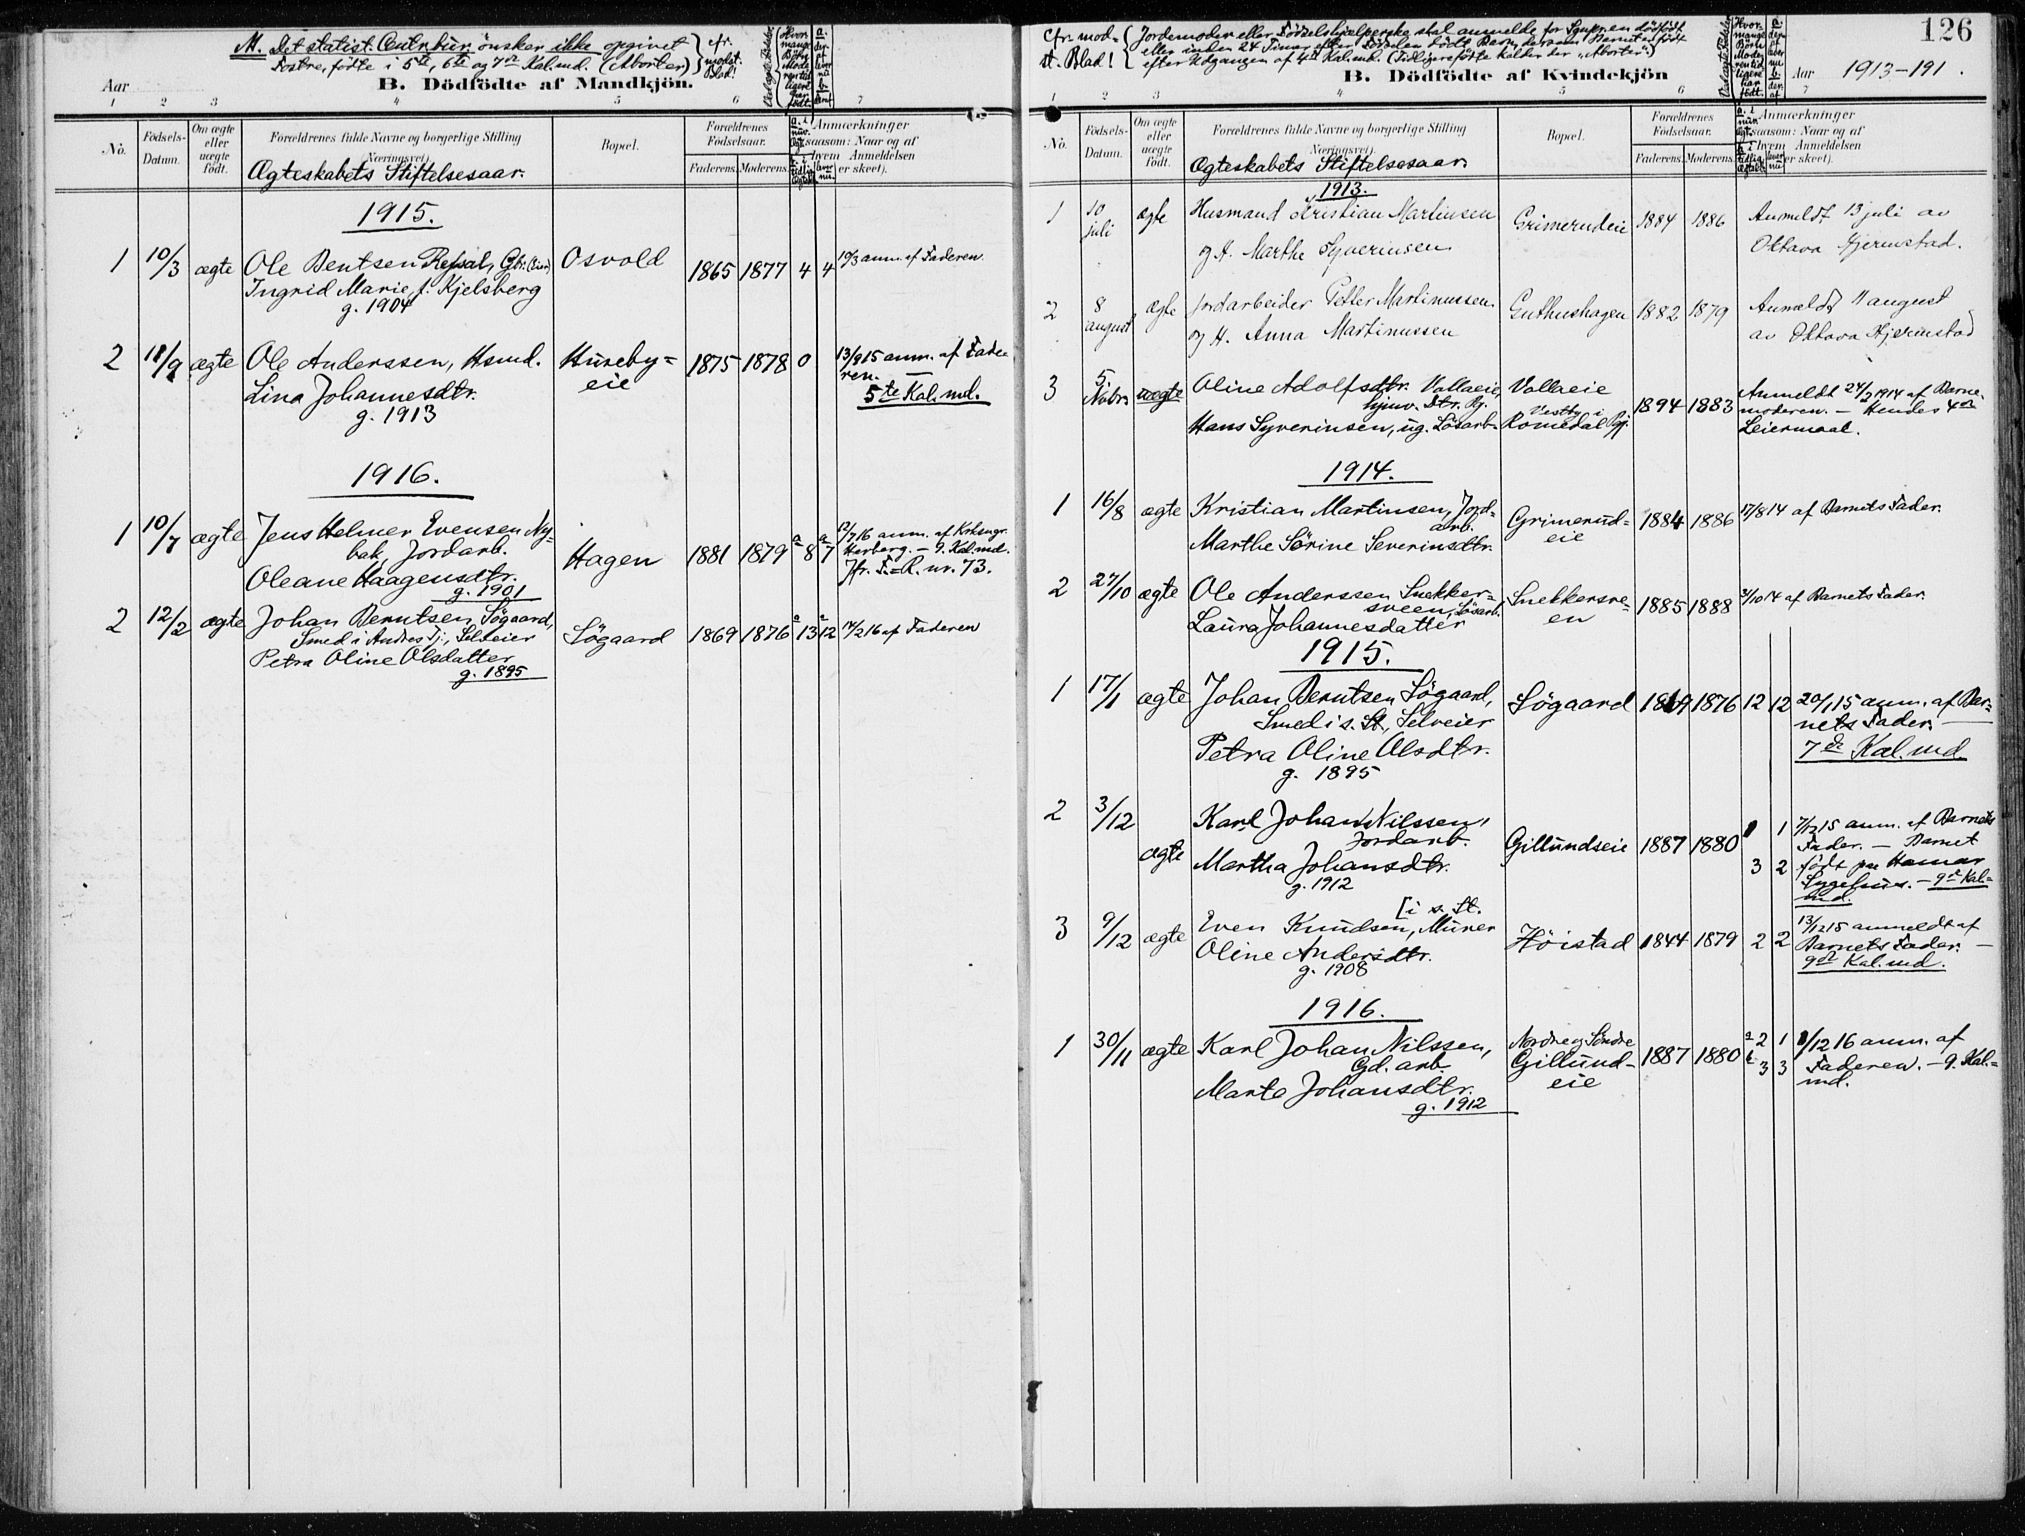 M. Det statist. Centr.bur. ønsker ikke opgivet
Fostre, födte i 5te, 6te og 7de Kal.md. (Aborter)
cfr. modst. Blad!
Aar
B. Dödfödte af Mandkjön.
1 2 3 4 5 6 7
No.
Födsels-Datum.
Om ægte eller uægte födt.
Forældrenes fulde Navne og borgerlige Stilling
(Næringsvei).
Ægteskabets Stiftelsesaar.
Bopæl.
Forældrenes Födselsaar.
Faderens. Moderens.
Anmærkninger
(saasom: Naar og af
hvem Anmeldelsen
er skeet).
1915.
1 10/3 ægte Ole Bentsen Refsal, Gbr. Osvold 1865 1877 4 4 10/3 anm. af Faderen
Ingrid Marie f. Kjelsberg
g. 1904
2 18/9 ægte Ole Anderssen, Hsmd. Huseby= 1875 1878 0 13/9 15 anm. af Fade
eie ren. —
Lina Johannesdtr. 5te Kal.md.
g. 1913
1916.
1 10/7 ægte Jens Helmer Evensen Ny-
bak, Jordarb. Hagen 1881 1879 a 8 a 7 12/7 16 anm. af Krksngr.
Harberg. — 9. Kal.md.
Oleane Haagensdtr. Jfr. F.=R. nr. 73.
g. 1901
2 12/2 ægte Johan Berntsen Søgaard,
Smed i Andres Tj., Selveier Søgaard 1869 1876 a 13 a 12 14/2 16 af Faderen
Petra Oline Olsdatter
g. 1895
126
Cfr. mod-
st. Blad!
Jordemoder eller Födselshjælperske skal anmelde for Sognepr. dödfödt
eller inden 24 Timer efter Födselen dödt Barn, dersom Barnet er födt
efter Udgangen af 4de Kal.md. (Tidligere födte kaldes der „Aborter“.)
B. Dödfödte af Kvindekjön
Aar 1913-191 .
1 2 3 4 5 6 7
No.
Födsels-Datum.
Om ægte eller uægte födt.
Forældrenes fulde Navne og borgerlige Stilling
(Næringsvei).
Ægteskabets Stiftelsesaar.
Bopæl.
Forældrenes Födselsaar.
Faderens. Moderens.
Anmærkninger
(saasom: Naar og af
hvem Anmeldelsen
er skeet).
1913.
1 10 juli ægte Husmand Kristian Martinsen Grimerudeie 1884 1886 Anmeldt 13 juli av
og H. Marthe Syverinsen Oktava Hjermstad.
2 8 august ægte Jordarbeider Petter Martinussen Guthushagen 1882 1879 Anmeldt 11 august
og H. Anna Martinussen av Oktava Hjermstad
3 5 Nobr. uægte Oline Adolfsdtr. Vollaeie, Vollaeie 1894 1883 Anmeldt 24/2 1914 af Barne-
hjmv. Dtr. Pg. Vestby i moderen. — Hendes 4de
Hans Syverinsen, ug. Løsarb. Romedal Pgj. Leiermaal.
1914.
1 16/8 ægte Kristian Martinsen, Jord-
arb. Grimerud-
eie 1884 1886 17/8 14 af Barnets Fader.
Marthe Sørine Severinsdtr.
2 27/10 ægte Ole Anderssen Snekker-
sveen, Løsarb. Snekkersve-
en 1885 1888 31/10 14 af Barnets Fader.
Laura Johannesdatter
1915.
1 17/1 ægte Johan Berntsen Søgaard, Søgaard 1869 1876 12 12 20/1 15 anm. af Bar-
Smed i s. St., Selveier nets Fader. —
Petra Oline Olsdtr. 7de Kal.md.
g. 1895
2 3/12 ægte Karl Johan Nilssen, 1 7/12 15 anm. af Barnets
Jordarb. Gillundseie 1887 1880 Fader. — Barnet
Martha Johansdtr. 3 2 födt paa Hamar
g. 1912 Sygehus. — 9de Kal=
md.
3 9/12 ægte Even Knudsen, Murer [i s. St. Höistad 1844 1879 2 2 13/12 15 anmeldt af
Oline Andersdtr. Barnets Fader. —
g. 1908 9de Kal.md.
1916.
1 30/11 ægte Karl Johan Nilssen, Nordre og Söndre a 2 1 1/12 16 anm. af
Gd. arb. Gillund- 1887 1880 b 3 3 Faderen. — 9. Kal.=
Marte Johansdtr. eie md.
g. 1912